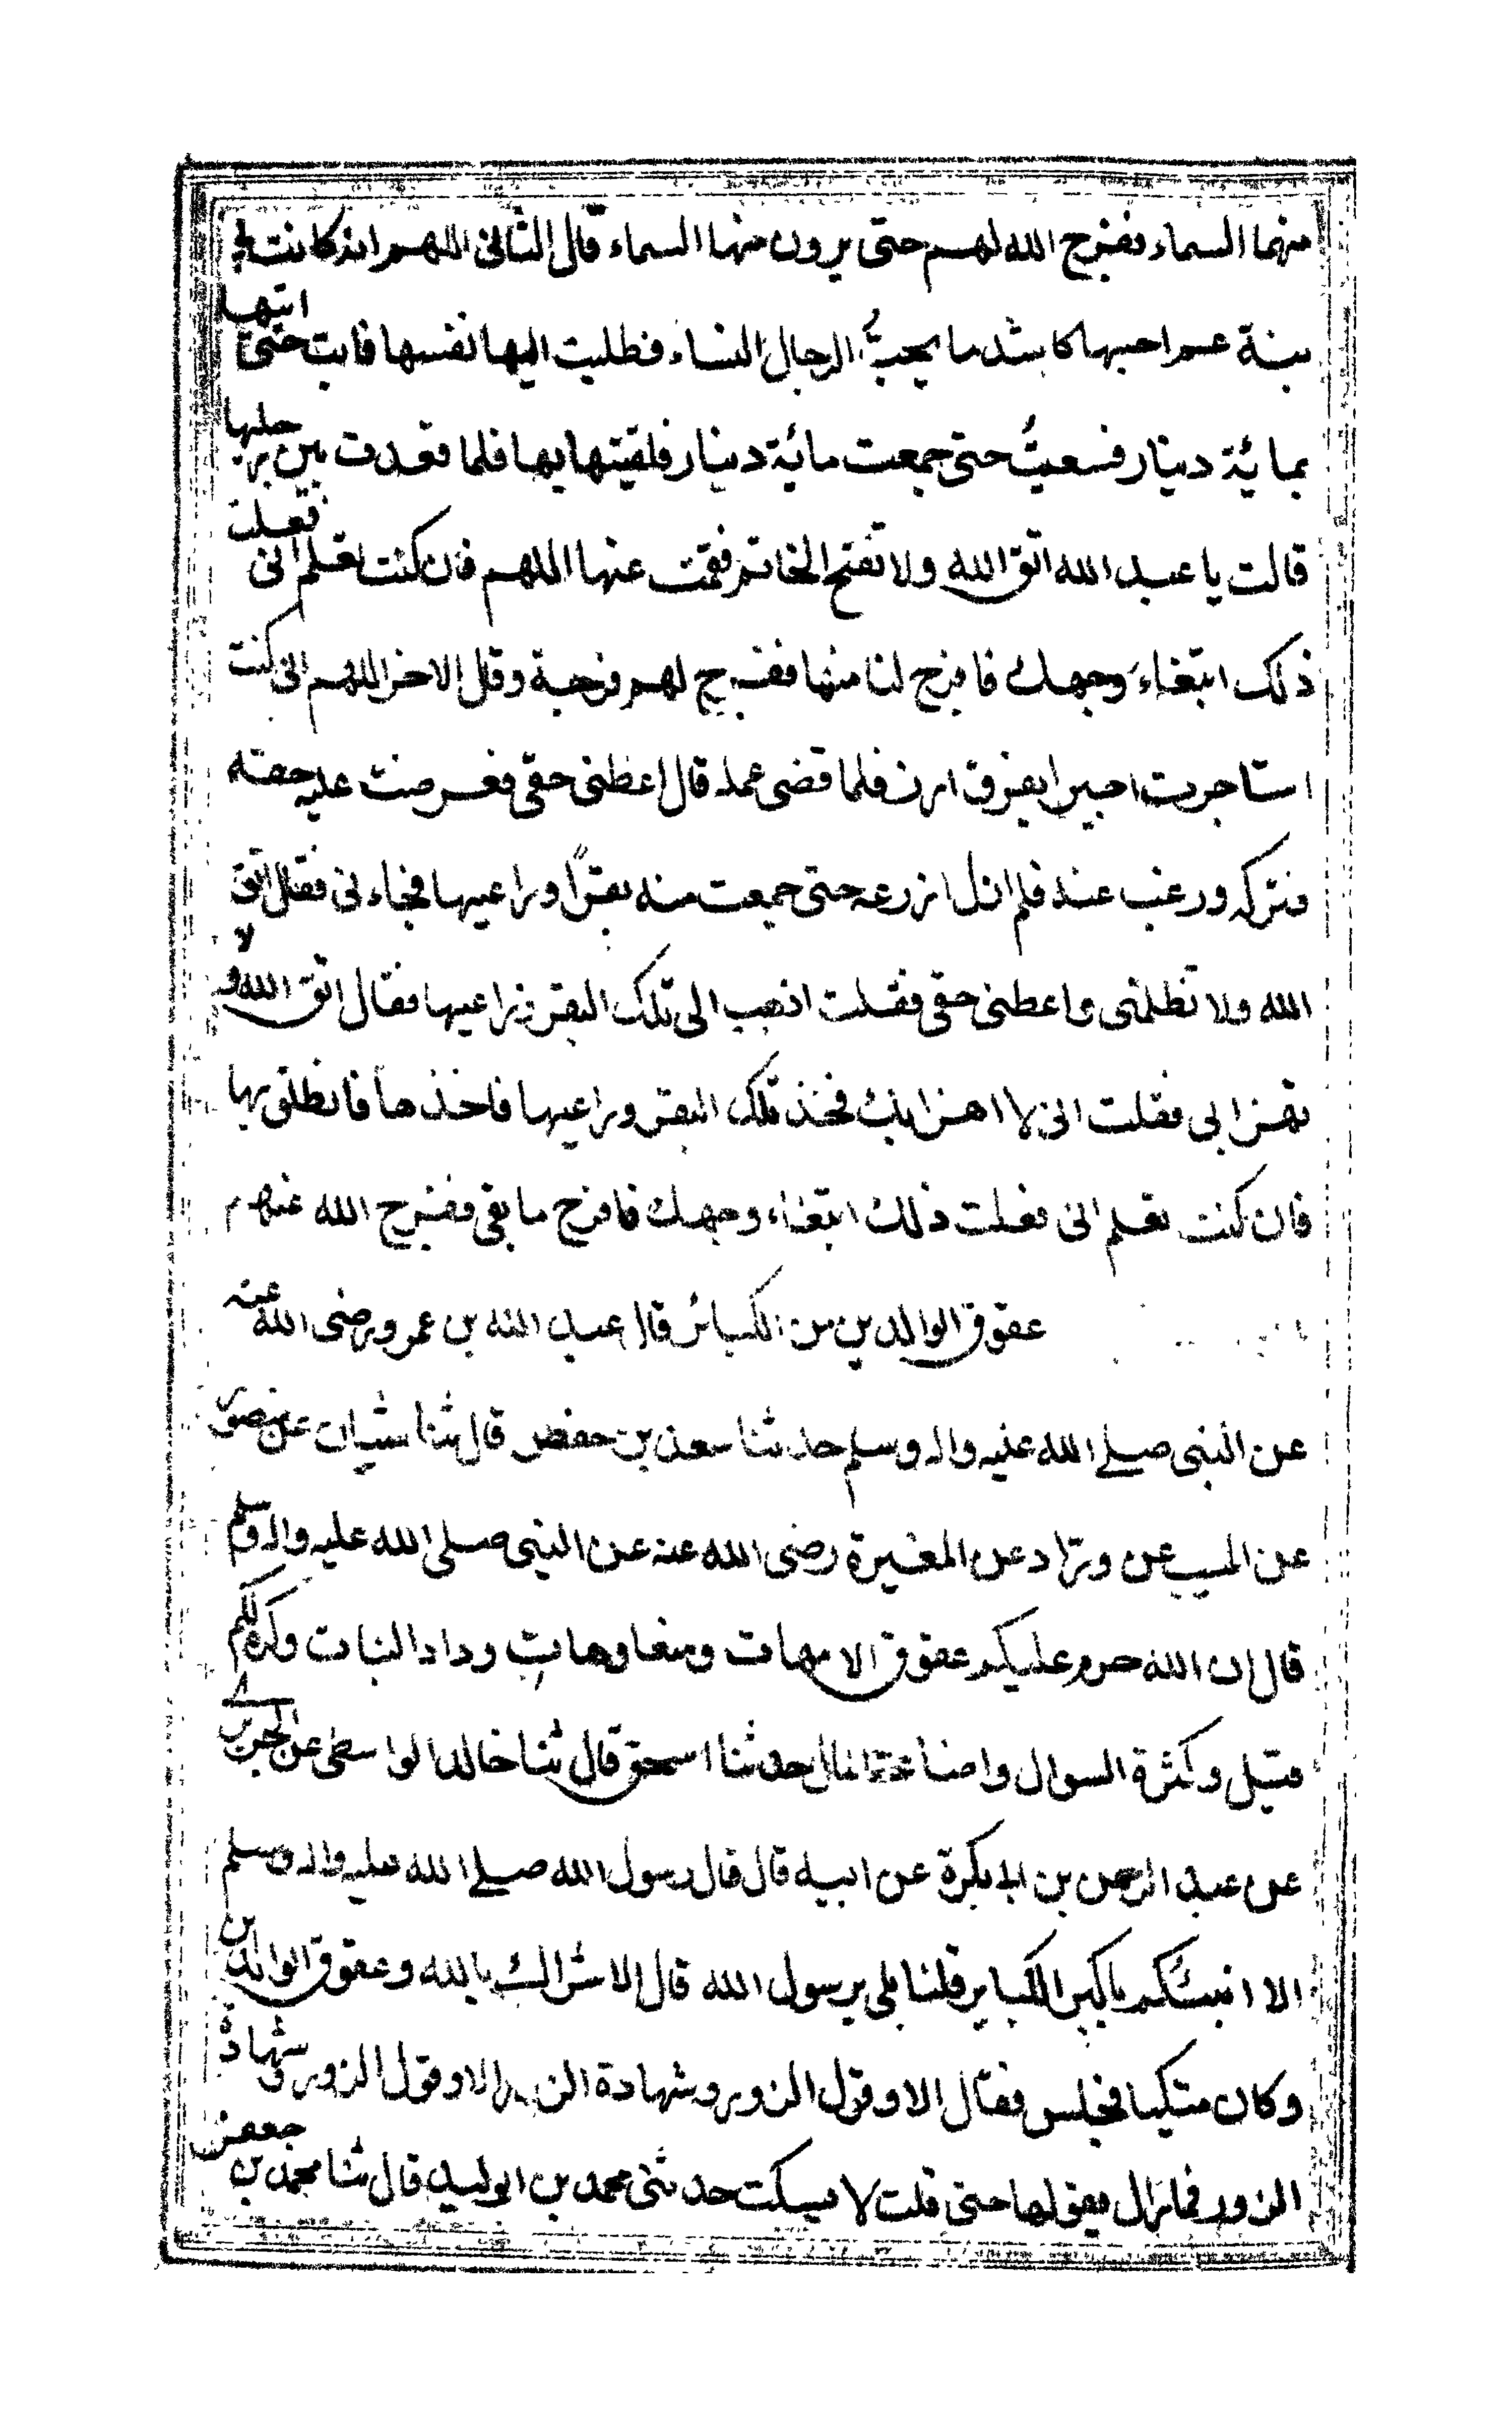 منها السماء ففرج الله لهم حتى يرون منها السماء قال الثانى اللهم انه كانت لى
بنة عم احبها كاشد ما يحبُّ الرجال النساء فطلبت اليها نفسها فابت حتى اتيتها
بمائة دينار فسعيتُ حتى جمعت مائة دينار فلقيتها بها فلما قعدت بين رجليها
قالت يا عبد الله اتق الله ولا تفتح الخاتم فقمت عنها اللهم فان كنت تعلم انى فعلت
ذلك ابتغاء وجهك فافرج لنا منها ففرج لهم فرجة وقال الاخر اللهم انى كنت
استاجرت اجيرا بفرق ارز فلما قضى عمله قال اعطنى حقى فعرضت عليه حقه
فتركه ورغب عنه فلم ازل ازرعه حتى جمعت منه بقرًا وراعيها فجاءنى فقال اتق
الله ولا تظلمنى واعطنى حقى فقلت اذهب الى تلك البقر وراعيها فقال اتق الله ولا
تهزا بى فقلت انى لا اهزا بك فخذ تلك البقر وراعيها فاخذها فانطلق بها
فان كنت تعلم انى فعلت ذلك ابتغاء وجهك فافرج ما بقى ففرج الله عنهم
عقوق الوالدين من الكبائر قال عبد الله بن عمرو رضى الله عنه
عن النبى صلى الله عليه واله وسلم حدثنا سعد بن حفص قال ثنا شيبان عن منصور
عن المسيب عن وراد عن المغيرة رضى الله عنه عن النبى صلى الله عليه واله وسلم
قال ان الله حرم عليكم عقوق الامهات ومنعا وهات وداد البنات وكره لكم
قيل وكثرة السوال واضاعة المال حدثنا اسحق قال ثنا خالد الواسطى عن الجريرى
عن عبد الرحمن بن ابى بكرة عن ابيه قال قال رسول الله صلى الله عليه واله وسلم
الا انبئكم باكبر الكباير قلنا بلى يرسول الله قال الاشراك بالله وعقوق الوالدين
وكان متكيا فجلس فقال الا وقول الزور وشهادة الزور الا وقول الزور وشهادة
الزور فما زال يقولها حتى قلت لا يسكت حدثنى محمد بن الوليد قال ثنا محمد بن جعفر